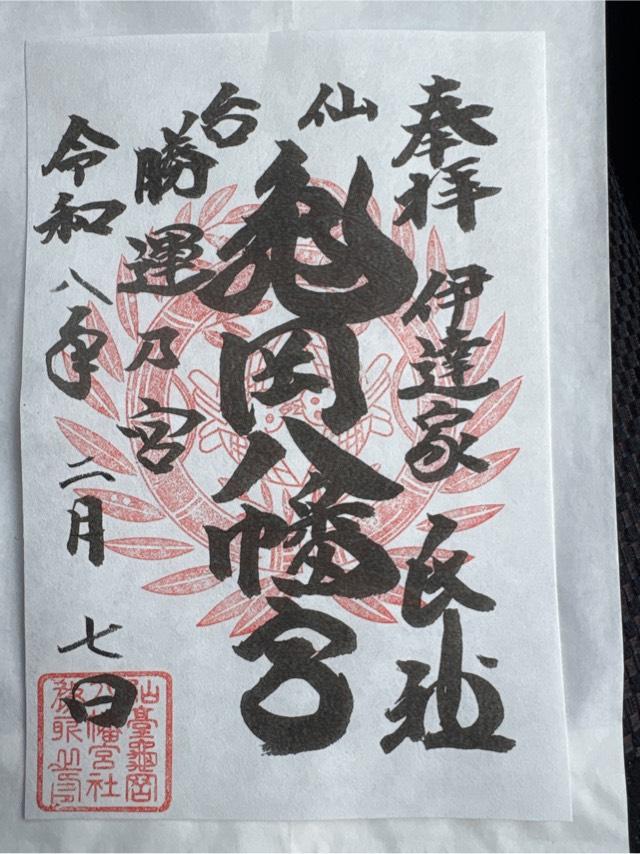 奉拝 伊達家 氏神
仙台
亀岡八幡宮
勝運乃宮
令和八年 二月 七日
仙臺龜岡
八幡宮社